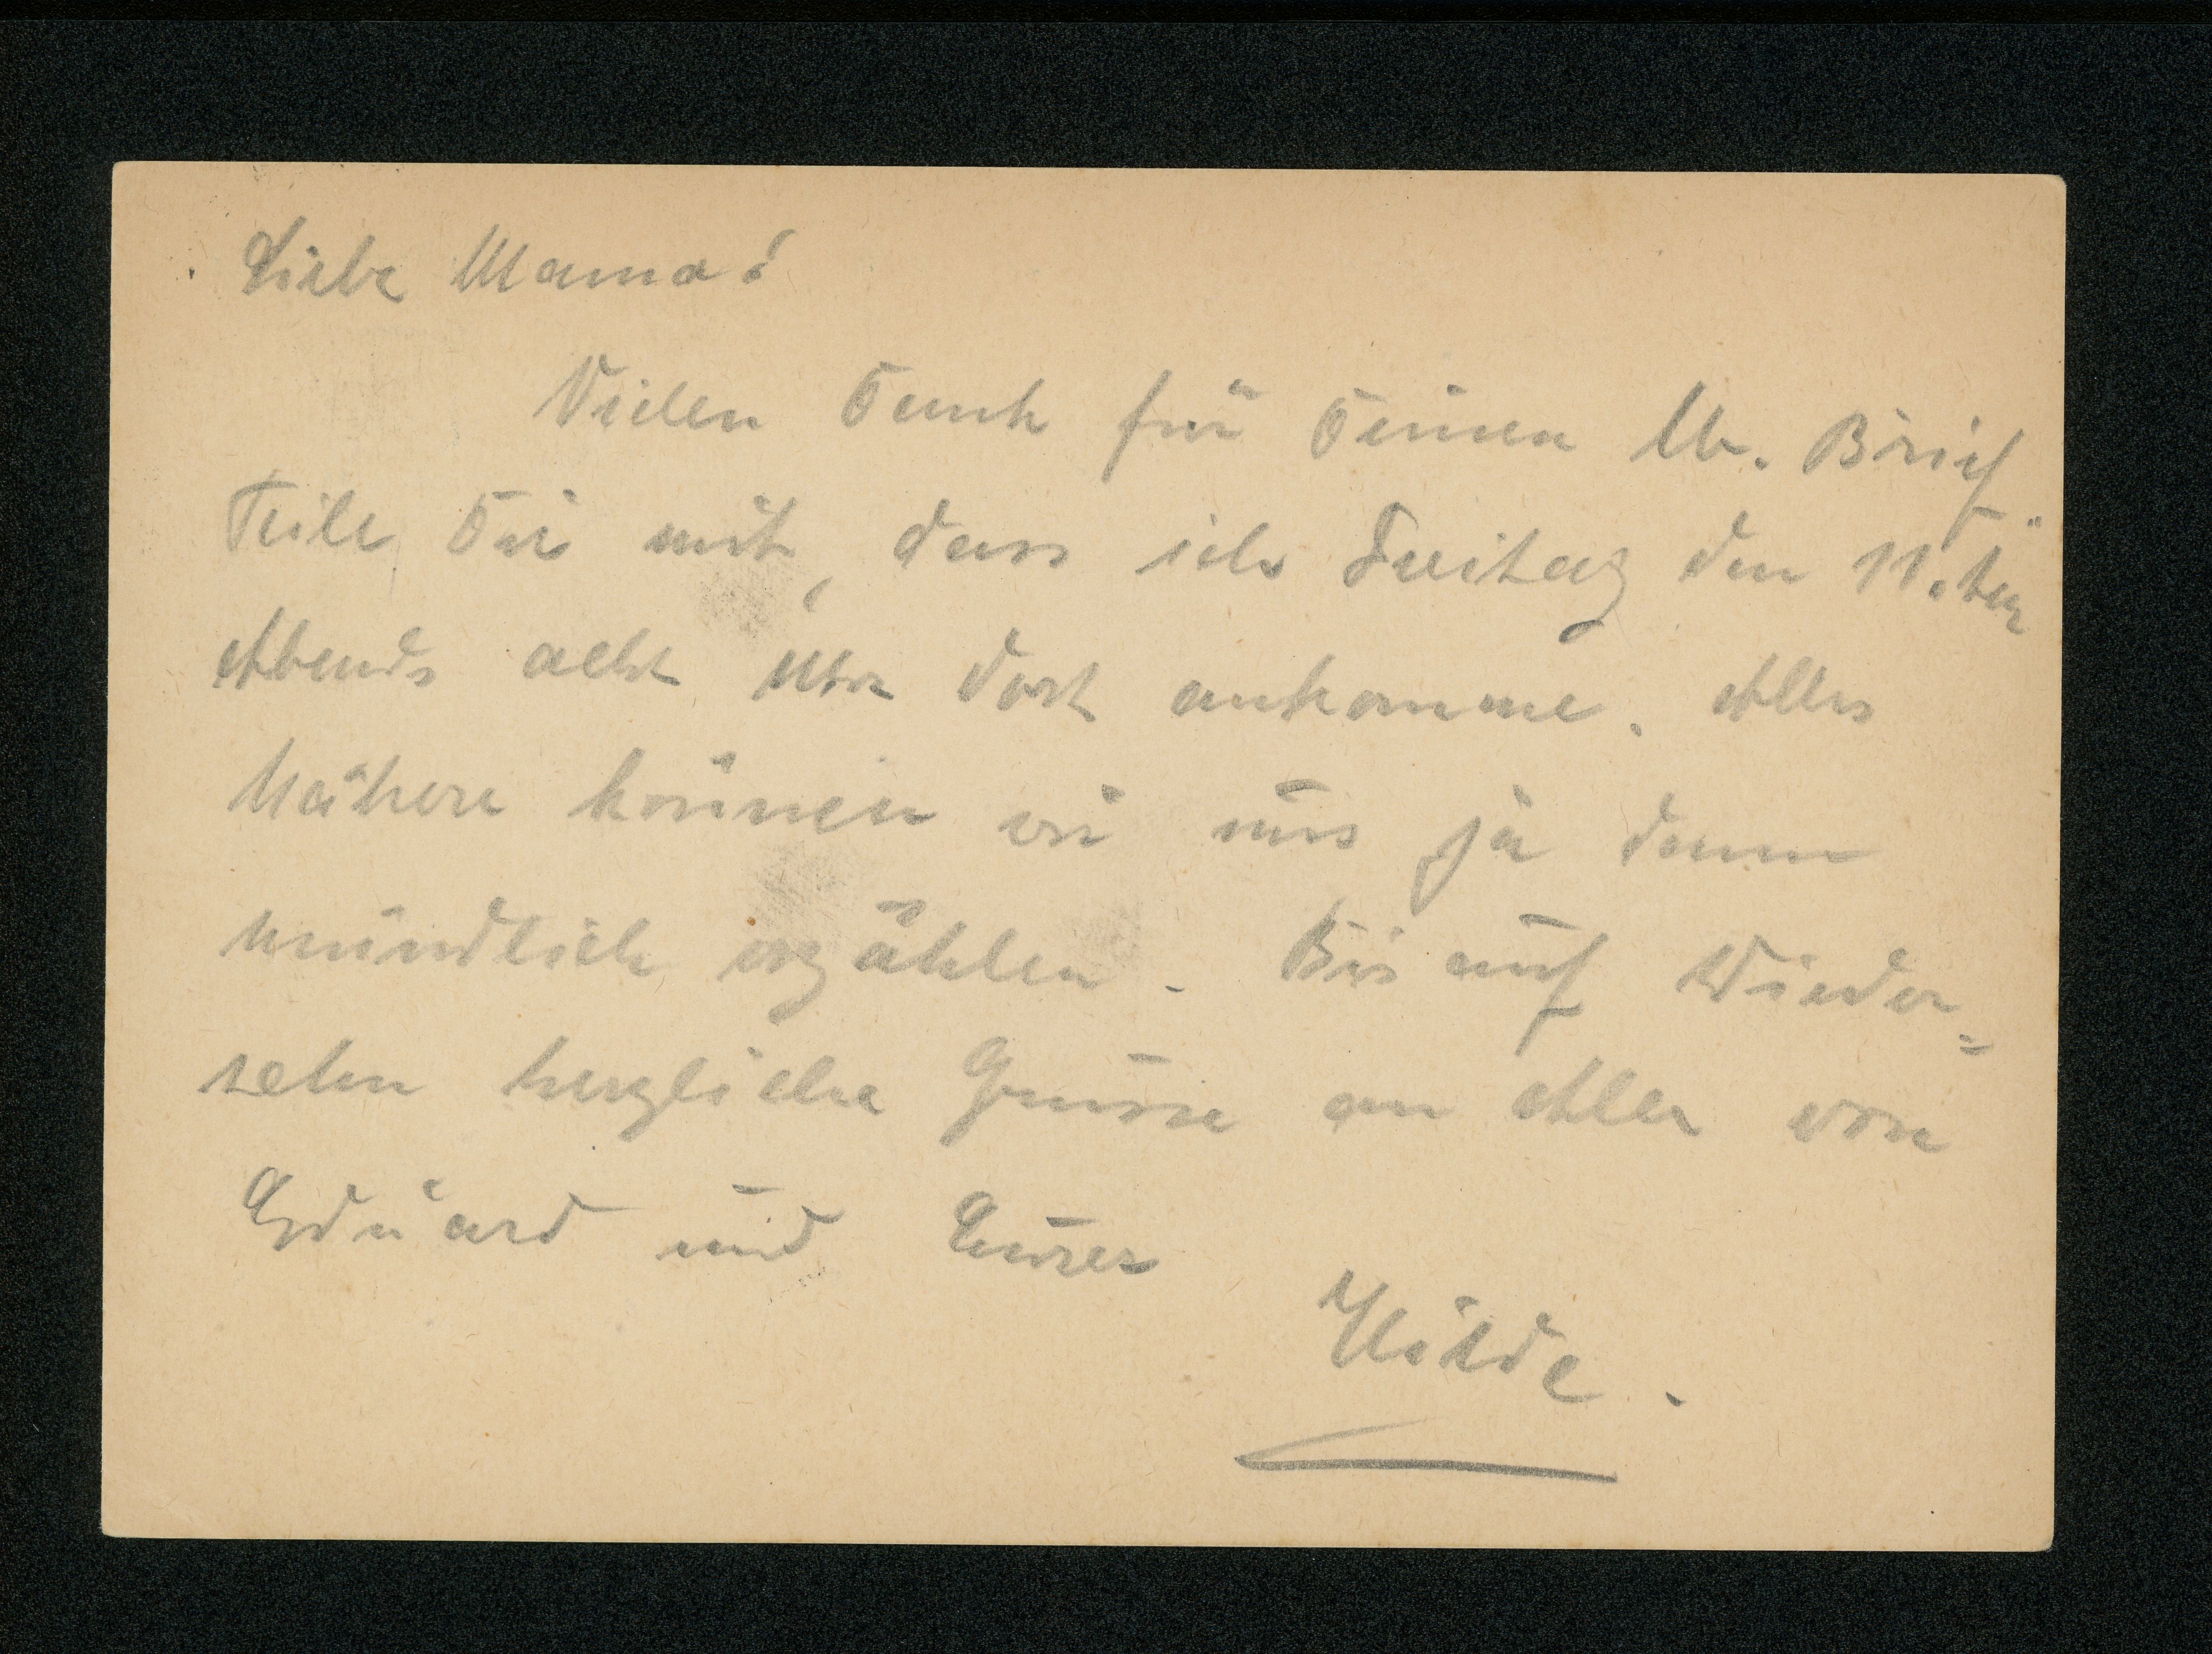 Liebe Mama!
Vielen Dank für Deinen lb. Brief.
Teile Dir mit, dass ich Freitag den 11. ten
Abends acht Uhr dort ankomme. Alles
Nähere können wir uns ja dann
mündlich erzählen. Bis auf Wieder=
sehn herzliche Grüsse an Alle von
Eduard und Eurer
Hilde.